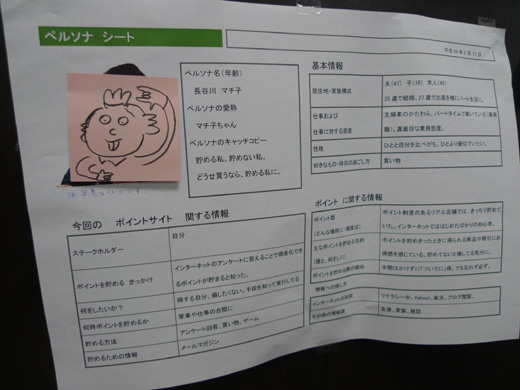 ペルソナ シート
ペルソナ名(年齢)
長谷川 マチ子
ペルソナの愛称
マチ子ちゃん
ペルソナのキャッチコピー
貯める私。貯めない私。
どうせ買うなら、貯める私に。
基本情報
居住地・家族構成
夫(47) 子(16) 本人(45)
25歳で結婚、27歳で出産を機にパート生活に。
仕事および
仕事に対する態度
主婦業のかたわら、パートタイムで働いている
真面目な業務態度。
性格
ひとと自分を比べがち。ひとより優位でいたい。
好きなもの・休日の過ごし方
買い物
今回の ポイントサイト 関する情報
ステークホルダー
自分
ポイントを貯める きっかけ
インターネットのアンケートに答えることで現金化でき
るポイントが貯まると知った。
何をしたいか?
得する自分、損したくない。手段を知って実行してる
何時ポイントを貯めるか
家事や仕事の合間に
貯める方法
アンケート回答、買い物、ゲーム
貯めるための情報
メールマガジン
ポイント に関する情報
ポイント歴
(どんな場所に・頻度は)
ポイント制度のあるリアル店舗では、きっちり貯めて
いた。インターネットでははじめたばかりの初心者。
主なポイントを貯める目的
ポイントを貯めきったときに得られる商品や割引にお
得感を感じている。貯めてないと損してる気分に。
手間はかけずに「ついでに」得。でも忘れず必ず。
情報への接し方
インターネットの利用
リテラシー中。Yahoo!、楽天、ブログ閲覧。
その他の情報源
友達、家族、雑誌